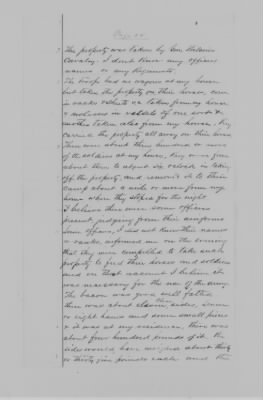 Page 24
The property was taken by Gen.
Cavalry. I dont know any officers
names or any Regiments.
The troops had no wagons at my house
but taken the property on their horses, corn
in sacks & sheets &c taken from my house
& molasses in vessels of one sort &
another taken also from my house, they
carried the property all away on their horses
There were about three hundred or more
of the soldiers at my house, they or
about them to asked in taking
off the property, and removed it to their
camp about a mile or more from my
home where they stoped for the night
I believe there were some officers
present, judging from their uniforms
Some officers, I did not know their names
or ranks, informed me on the evening
that they were compelled to take such
property to feed their horses and soldiers
and on that account I believe it
was necessary for the use of the army.
The bacon was good well fatted
there was about eleven sides,
or eight hams and some small pieces
& it was at my residence, there was
about four hundred pounds of it the
sides would have weighed about thirty
to thirty five pounds each and the